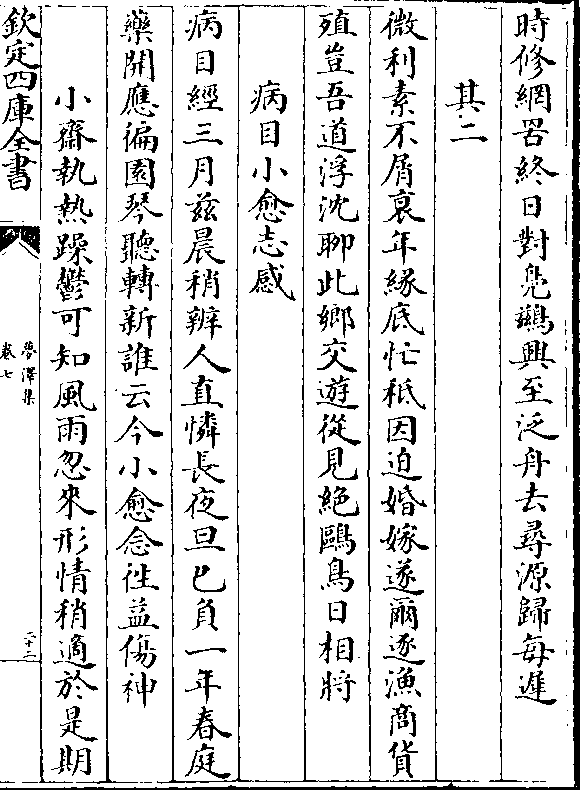 時修網罟終日對凫鷀興至泛舟去尋源歸每遲
其二
微利素不屑衰年緣底忙秪因迫婚嫁遂爾逐漁商貨
殖豈吾道浮沈聊此鄉交遊從見絶鷗鳥日相將
病目小愈志感
病目經三月兹晨稍辨人直憐長夜旦已負一年春庭
藥開應徧園琴聽轉新誰云今小愈念徃益傷神
小齋執熱躁鬱可知風雨忽來形情稍適於是期
欽定四庫全書
夢澤集
卷七
二十二